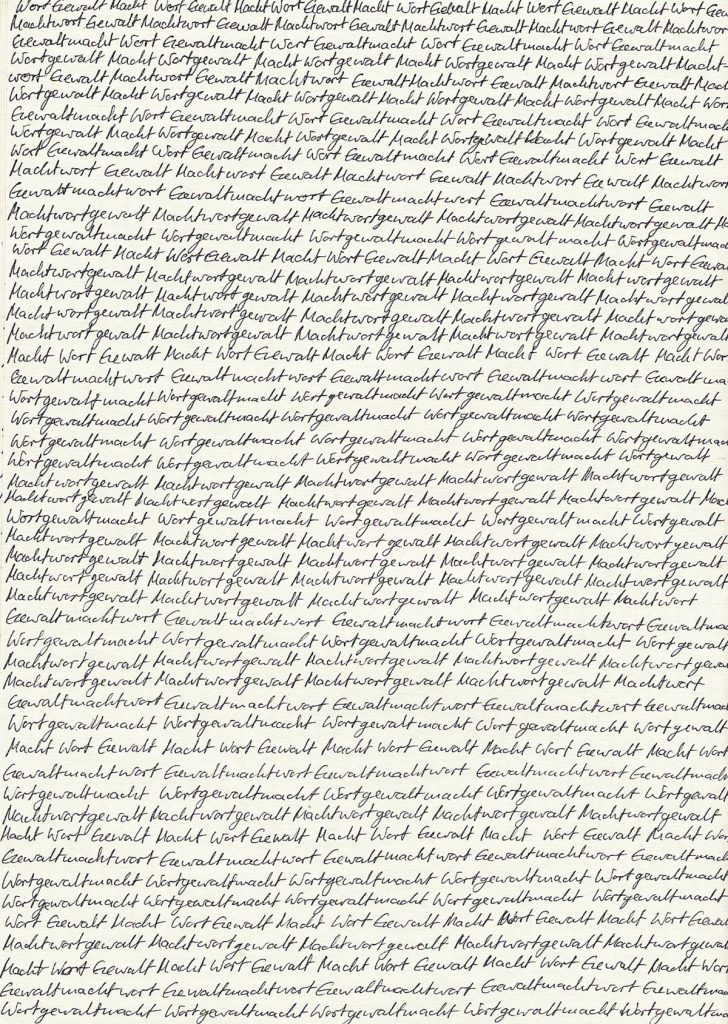 Wort Gewalt Macht Wort Gewalt Macht Wort Gewalt Macht Wort Gewalt Macht Wort Gewalt Macht Wort
Machtwort Gewalt Machtwort Gewalt Machtwort Gewalt Machtwort Gewalt Machtwort Gewalt Machtwort
Gewaltmacht Wort Gewaltmacht Wort Gewaltmacht Wort Gewaltmacht Wort Gewaltmacht
Wortgewalt Macht Wortgewalt Macht Wortgewalt Macht Wortgewalt Macht Wortgewalt Macht
Wort Gewalt Machtwort Gewalt Machtwort Gewalt Machtwort Gewalt Machtwort Gewalt
Wortgewalt Macht Wortgewalt Macht Wortgewalt Macht Wortgewalt Macht Wortgewalt Macht
Gewaltmacht Wort Gewaltmacht Wort Gewaltmacht Wort Gewaltmacht Wort
Wortgewalt Macht Wortgewalt Macht Wortgewalt Macht Wortgewalt Macht Wortgewalt Macht
Wort Gewaltmacht Wort Gewaltmacht Wort Gewaltmacht Wort Gewaltmacht Wort Gewalt
Machtwort Gewalt Machtwort Gewalt Machtwort Gewalt Machtwort Gewalt Machtwort
Gewaltmachtwort Gewaltmachtwort Gewaltmachtwort Gewaltmachtwort Gewalt
Machtwortgewalt Machtwortgewalt Machtwortgewalt Machtwortgewalt Machtwortgewalt
Wortgewaltmacht Wortgewaltmacht Wortgewaltmacht Wortgewaltmacht
Wort Gewalt Macht Wort Gewalt Macht Wort Gewalt Macht Wort Gewalt Macht Wort
Machtwortgewalt Machtwortgewalt Machtwortgewalt Machtwortgewalt Machtwortgewalt
Machtwortgewalt Machtwortgewalt Machtwortgewalt Machtwortgewalt
Machtwortgewalt Machtwortgewalt Machtwortgewalt Machtwortgewalt
Machtwortgewalt Machtwortgewalt Machtwortgewalt Machtwortgewalt Machtwortgewalt
Macht Wort Gewalt Macht Wort Gewalt Macht Wort Gewalt Macht Wort Gewalt Macht
Gewaltmachtwort Gewaltmachtwort Gewaltmachtwort Gewaltmachtwort Gewalt
Wortgewaltmacht Wortgewaltmacht Wortgewaltmacht Wortgewaltmacht Wortgewaltmacht
Wortgewaltmacht Wortgewaltmacht Wortgewaltmacht Wortgewaltmacht Wortgewaltmacht
Wortgewaltmacht Wortgewaltmacht Wortgewaltmacht Wortgewaltmacht
Wortgewaltmacht Wortgewaltmacht Wortgewaltmacht Wortgewaltmacht Wortgewalt
Machtwortgewalt Machtwortgewalt Machtwortgewalt Machtwortgewalt Machtwortgewalt
Machtwortgewalt Machtwortgewalt Machtwortgewalt Machtwortgewalt Machtwortgewalt
Wortgewaltmacht Wortgewaltmacht Wortgewaltmacht Wortgewaltmacht Wortgewalt
Machtwortgewalt Machtwortgewalt Machtwortgewalt Machtwortgewalt Machtwortgewalt
Machtwortgewalt Machtwortgewalt Machtwortgewalt Machtwortgewalt Machtwortgewalt
Machtwortgewalt Machtwortgewalt Machtwortgewalt Machtwortgewalt Machtwortgewalt
Machtwortgewalt Machtwortgewalt Machtwortgewalt Machtwortgewalt Machtwort
Gewaltmachtwort Gewaltmachtwort Gewaltmachtwort Gewaltmachtwort
Wortgewaltmacht Wortgewaltmacht Wortgewaltmacht Wortgewaltmacht Wortgewalt
Machtwortgewalt Machtwortgewalt Machtwortgewalt Machtwortgewalt
Machtwortgewalt Machtwortgewalt Machtwortgewalt Machtwortgewalt Machtwort
Gewaltmachtwort Gewaltmachtwort Gewaltmachtwort Gewaltmachtwort
Wortgewaltmacht Wortgewaltmacht Wortgewaltmacht Wortgewaltmacht Wortgewalt
Macht Wort Gewalt Macht Wort Gewalt Macht Wort Gewalt Macht Wort Gewalt Macht Wort
Gewaltmachtwort Gewaltmachtwort Gewaltmachtwort Gewaltmachtwort
Wortgewaltmacht Wortgewaltmacht Wortgewaltmacht Wortgewaltmacht Wortgewalt
Machtwortgewalt Machtwortgewalt Machtwortgewalt Machtwortgewalt Machtwortgewalt
Macht Wort Gewalt Macht Wort Gewalt Macht Wort Gewalt Macht Wort Gewalt Macht
Gewaltmachtwort Gewaltmachtwort Gewaltmachtwort Gewaltmachtwort
Wortgewaltmacht Wortgewaltmacht Wortgewaltmacht Wortgewaltmacht Wortgewaltmacht
Wortgewaltmacht Wortgewaltmacht Wortgewaltmacht Wortgewaltmacht Wortgewaltmacht
Wort Gewalt Macht Wort Gewalt Macht Wort Gewalt Macht Wort Gewalt Macht Wort
Machtwortgewalt Machtwortgewalt Machtwortgewalt Machtwortgewalt
Macht Wort Gewalt Macht Wort Gewalt Macht Wort Gewalt Macht Wort Gewalt Macht Wort
Gewaltmachtwort Gewaltmachtwort Gewaltmachtwort Gewaltmachtwort
Wortgewaltmacht Wortgewaltmacht Wortgewaltmacht Wortgewaltmacht